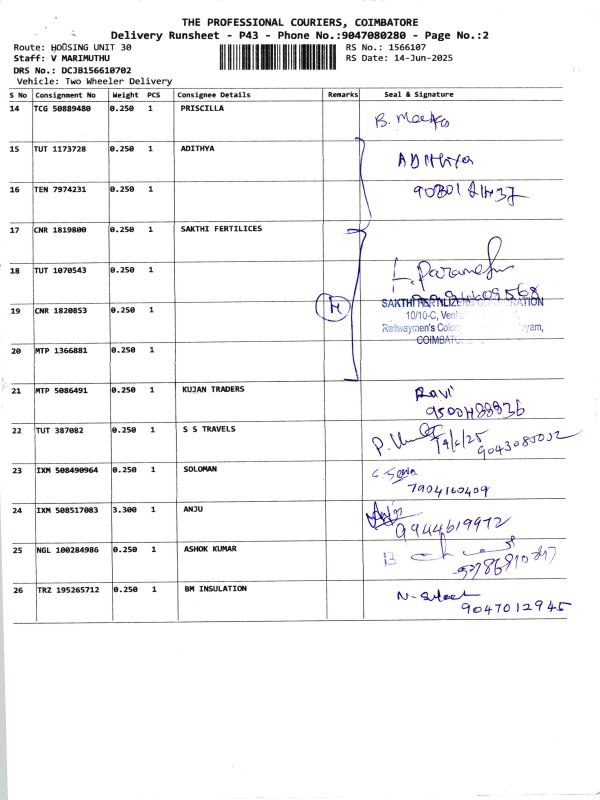 THE PROFESSIONAL COURIERS, COIMBATORE
Delivery Runsheet - P43 - Phone No.:9047080280 - Page No.:2
Route: HOUSING UNIT 30 RS No.: 1566107
Staff: V MARIMUTHU RS Date: 14-Jun-2025
DRS No.: DCJB156610702
Vehicle: Two Wheeler Delivery
S No Consignment No Weight PCS Consignee Details Remarks Seal & Signature
14 TCG 50889480 0.250 1 PRISCILLA
15 TUT 1173728 0.250 1 ADITHYA ADithya
16 TEN 7974231 0.250 1
17 CNR 1819800 0.250 1 SAKTHI FERTILICES
18 TUT 1070543 0.250 1
19 CNR 1820853 0.250 1 SAKTHI
10/10-C,
Railwaymen's
20 MTP 1366881 0.250 1
21 MTP 5086491 0.250 1 KUJAN TRADERS Ravi
9500488836
22 TUT 387082 0.250 1 S S TRAVELS
23 IXM 508490964 0.250 1 SOLOMAN
7904160409
24 IXM 508517083 3.300 1 ANJU
9944619972
25 NGL 100284986 0.250 1 ASHOK KUMAR
26 TRZ 195265712 0.250 1 BM INSULATION
9047012945